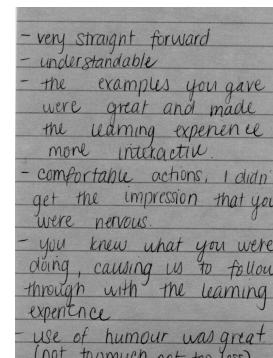 - very straight forward
- understandable
- the examples you gave
were great and made
the learning experience
more interactive.
- comfortable actions, I didn'
get the impression that you
were nervous.
- you knew what you were
doing, causing us to follow
through with the learning
experience
- use of humour was great
(not too much not too less)